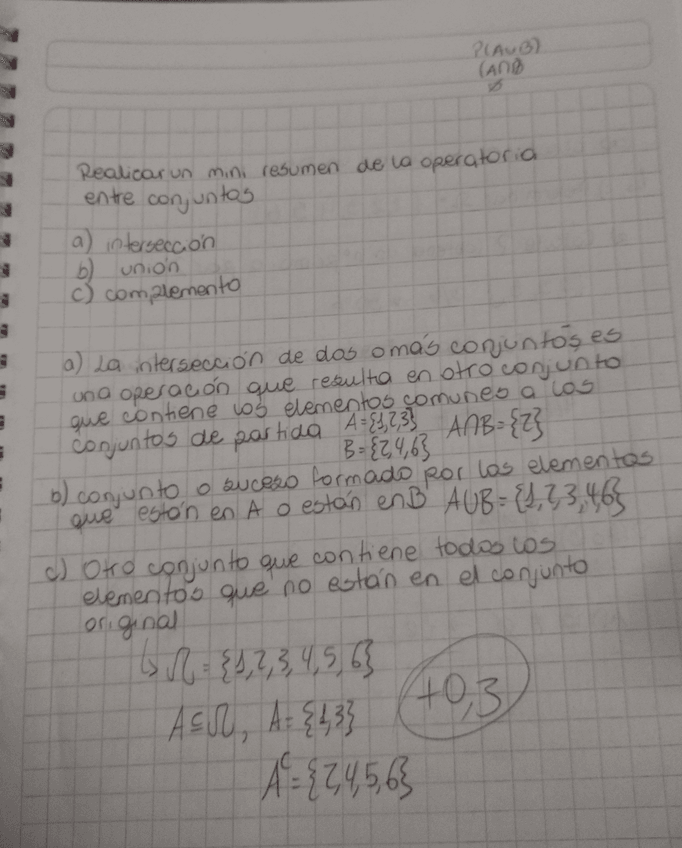 P(A∪B)
(A∩B
Realizar un mini resumen de la operatoria
entre conjuntos
a) intersección
b) unión
c) complemento
a) La intersección de dos o más conjuntos es
una operación que resulta en otro conjunto
que contiene los elementos comunes a los
conjuntos de partida A={1,2,3} A∩B={2}
B={2,4,6}
b) conjunto o suceso formado por los elementos
que están en A o están en B A∪B={1,2,3,4,6}
c) Otro conjunto que contiene todos los
elementos que no están en el conjunto
original
↳ Ω={1,2,3,4,5,6}
A⊆Ω, A={1,3}
+0,3
Aᶜ={2,4,5,6}